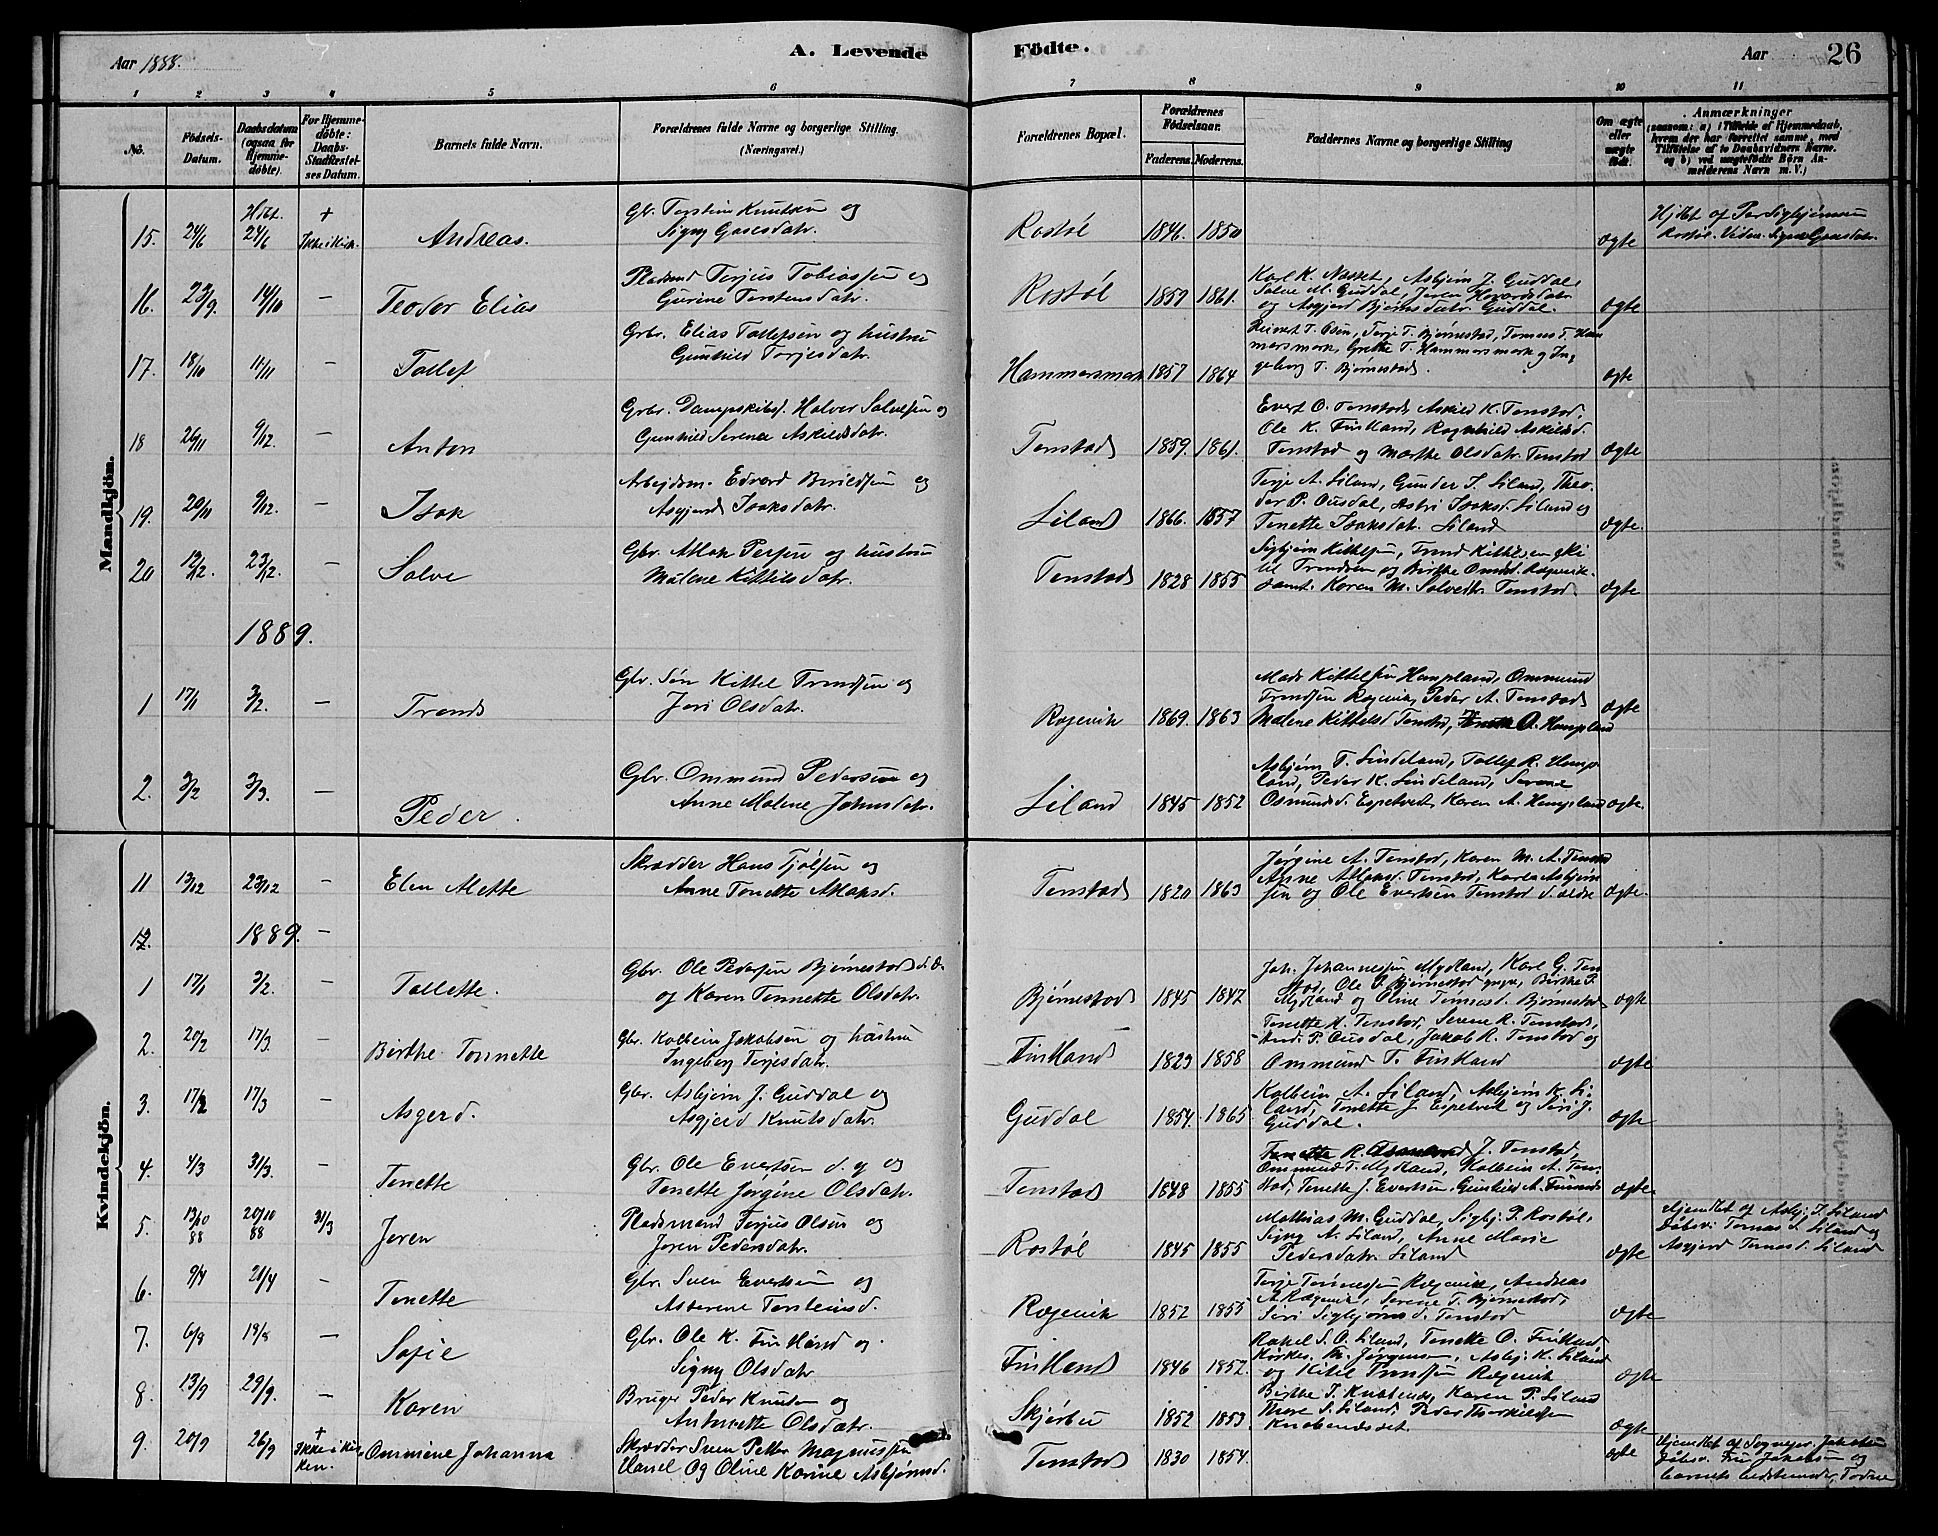 Aar 1888. A. Levende Födte. Aar 26
1 2 3 4 5 6 7 8 9 10 11
No. Födsels-Datum. Daabsdatum (ogsaa for Hjemmedöbte). For Hjemmedöbte: Daabs-Stadfæstelses Datum. Barnets fulde Navn. Forældrenes fulde Navne og borgerlige Stilling. (Næringsvei.) Forældrenes Bopæl. Forældrenes Födselsaar. Faderens. Moderens. Faddernes Navne og borgerlige Stilling Om ægte eller uægte födt. Anmærkninger (saasom: a) i Tilfælde af Hjemmedaab, hvem der har forrettet samme, med Tilföielse af to Daabsvidners Navne, og b) ved uægtefödte Börn Anmelderens Navn m. V.)
Mandkjön.
15. 24/6 Hjdt. 24/6 + Ikke i Kirk. Andreas. Gbr. Torstein Knutsen og
Signy Gasesdatr. Rostøl 1846. 1850 ægte Hjdbt af Per Sigbjørnsen
Rostøl.
16. 23/9 14/10 — Teodor Elias Pladsmd Terjus Tobiassen og
Gurine Torstensdatr. Rostøl 1859 1861. Karl K. Nasset, Asbjørn J. Guddal,
Salve M. Guddal, Joren Hovardsdatr
og Asgjerd Bjørnsdatr. Guddal. ægte
17. 18/10 11/11 — Tollef Grbr. Elias Tollefsen og hustru
Gunhild Torjesdatr. Hammersmark 1857 1864 Reinert T. Osen, Terje T. Bjørnestad, Tomas T. Ham
mersmark, Grethe T. Hammersmark og In,
geborg T. Bjørnestad. ægte
18 26/11 9/12. — Anton Grbr. Dampskibsf. Halvor Salvesen og
Gunhild Serena Askildsdatr. Tonstad 1859. 1861. Evert O. Tonstad, Askild K. Tonstad,
Ole K. Finkland, Ragnhild Askilds d.
Tonstad og Marthe Olsdatr. Tonstad ægte
19. 20/11 9/12. — Isak Arbejdsm. Edvard Berildsen og
Asgjerd Isaksdatr. Liland 1866. 1857 Terje A. Liland, Gunder I. Liland, Theo-
dor P. Ousdal, Astri Isaksd. Liland og
Tonette Isaksdatr. Liland ægte.
20 12/12. 23/12. — Salve Gbr. Atlak Persen og hustru
Malene Kittilsdatr. Tonstad 1828 1855 Sigbjørn Kittelsen, Trond Kittelsen
Trondsen og Birthe Rægevik
samt. Karen M. Salvedtr. Tonstad ægte
1889.
1 17/1 3/2. — Trond Gbr. Søn Kittel Trondsen og
Jori Olsdatr. Rægevik 1869. 1863 Mads Kittelsen Hompland, Ommund
Trondsen Rægevik, Peder A. Tonstad
Malene Kittelsd Tonstad, O. Hompland ægte
2. 3/2 3/3. — Peder. Gbr. Ommund Pedersen og
Anne Malene Jahnsdatr. Liland 1845 1852 Asbjørn T. Lindeland, Tollef R. Homp-
land, Peder K. Lindeland, Serene
Osmunds d. Espetveit, Karen A. Hompland ægte.
Kvindekjön.
11 13/12 23/12 — Elen Alette Skrædder Hans Tjølsen og
Anne Tonette Atlaksd. Tonstad 1820 1863 Jørgine A. Tonstad, Karen M. A. Tonstad
Anne Atlaksd. Tonstad, Karl Asbjørn
sen og Ole Evertsen Tonstad d. ældre ægte.
12. 1889. —
1 17/1 3/2. — Tallette. Gbr. Ole Pedersen Bjørnestad d. æ.
og Karen Tonnette Olsdatr. Bjørnestad 1845 1847 Joh. Johannessen Mydland, Karl G. Ton
stad, Ole P. Bjørnestad yngre, Birthe P.
Mydland og Oline Tømasd. Bjørnestad ægte
2. 20/2 17/3. — Birthe Tonnette Gbr. Kolbein Jakobsen og hustru
Ingeborg Terjesdatr. Finkland 1829 1858 Tonette K. Tonstad, Serene R. Tonstad,
And. P. Ousdal, Jakob R. Tonstad og
Ommund T. Finkland ægte
3. 17/2 17/3 — Asgerd. Gbr. Asbjørn J. Guddal og
Asgjerd Knutsdatr. Guddal 1854. 1865. Kolbein A. Liland, Asbjørn K. Li-
land, Tonette J. Espetveit og Siri J.
Guddal. ægte
4. 4/3 31/3. — Tonette Gbr. Ole Evertsen d. y og
Tonette Jørgine Olsdatr. Tonstad 1848 1855 Tonette R. J. Tonstad,
Ommund T. Mydland, Kolbein A. Ton-
stad, Tonette J. Evertsen, Gunhild A. ægte.
5. 13/10 88 20/10 88 31/3 Joren Pladsmand Terjus Olsen og
Joren Pedersdatr. Rostøl 1845 1855 Mathias M. Guddal, Sigbj. P. Rostøl,
Signy A. Liland, Anne Marie
Pedersdatr. Liland ægte Hjemdbt af Asbj. T. Liland
Dåbsv. Tomas S. Liland og
Asgjerd Tomasd. Liland
6. 9/4 20/4 — Tonette Gbr. Sven Evertsen og
Asberene Torsteinsd. Rægevik 1852 1855 Terje Tønnessen Rægevik, Andreas
A Rægevik, Serene T. Bjørnestad,
Siri Sigbjørns d. Tonstad ægte
7. 6/8 18/8 — Sofie Gbr. Ole K. Finkland og
Signy Olsdatr. Finkland 1846 1852. Rakel S. O. Liland, Tonette O. Finkland,
Kirkes. M. Jørgensen, Asbj. K. Liland
og Kitil Trondsen Rægevik ægte
8. 13/9 29/9. — Karen Bruger Peder Knutsen og
Antonette Olsdatr. Skjerbu 1852 1853 Birthe I. Knabende, Karen P. Liland
Thore S. Liland, Peder Therkildsen
Knabenødset. ægte
9. 20/9 26/9 + Ikke i Kirken. Ommine Johanna Skrædder Sven Petter Magnussen
Og Oline Karine Asbjørnsd. Tonstad 1830 1854. ægte Hjemdbt af Sognepr. Jakobsen
Dåbsv. Fru Jakobsen og
barnets bedstemoder,